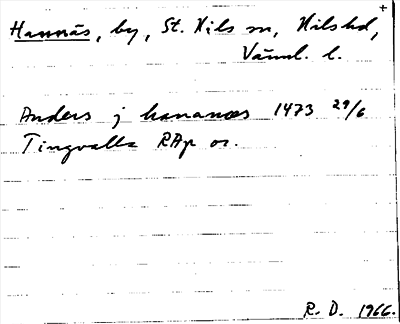 +
Hannäs, by, St. Kils sn, Kils hd,
Värml. l.
Anders j hananæs 1473 29/6
Tingvalla RAp or.
R. D. 1966.